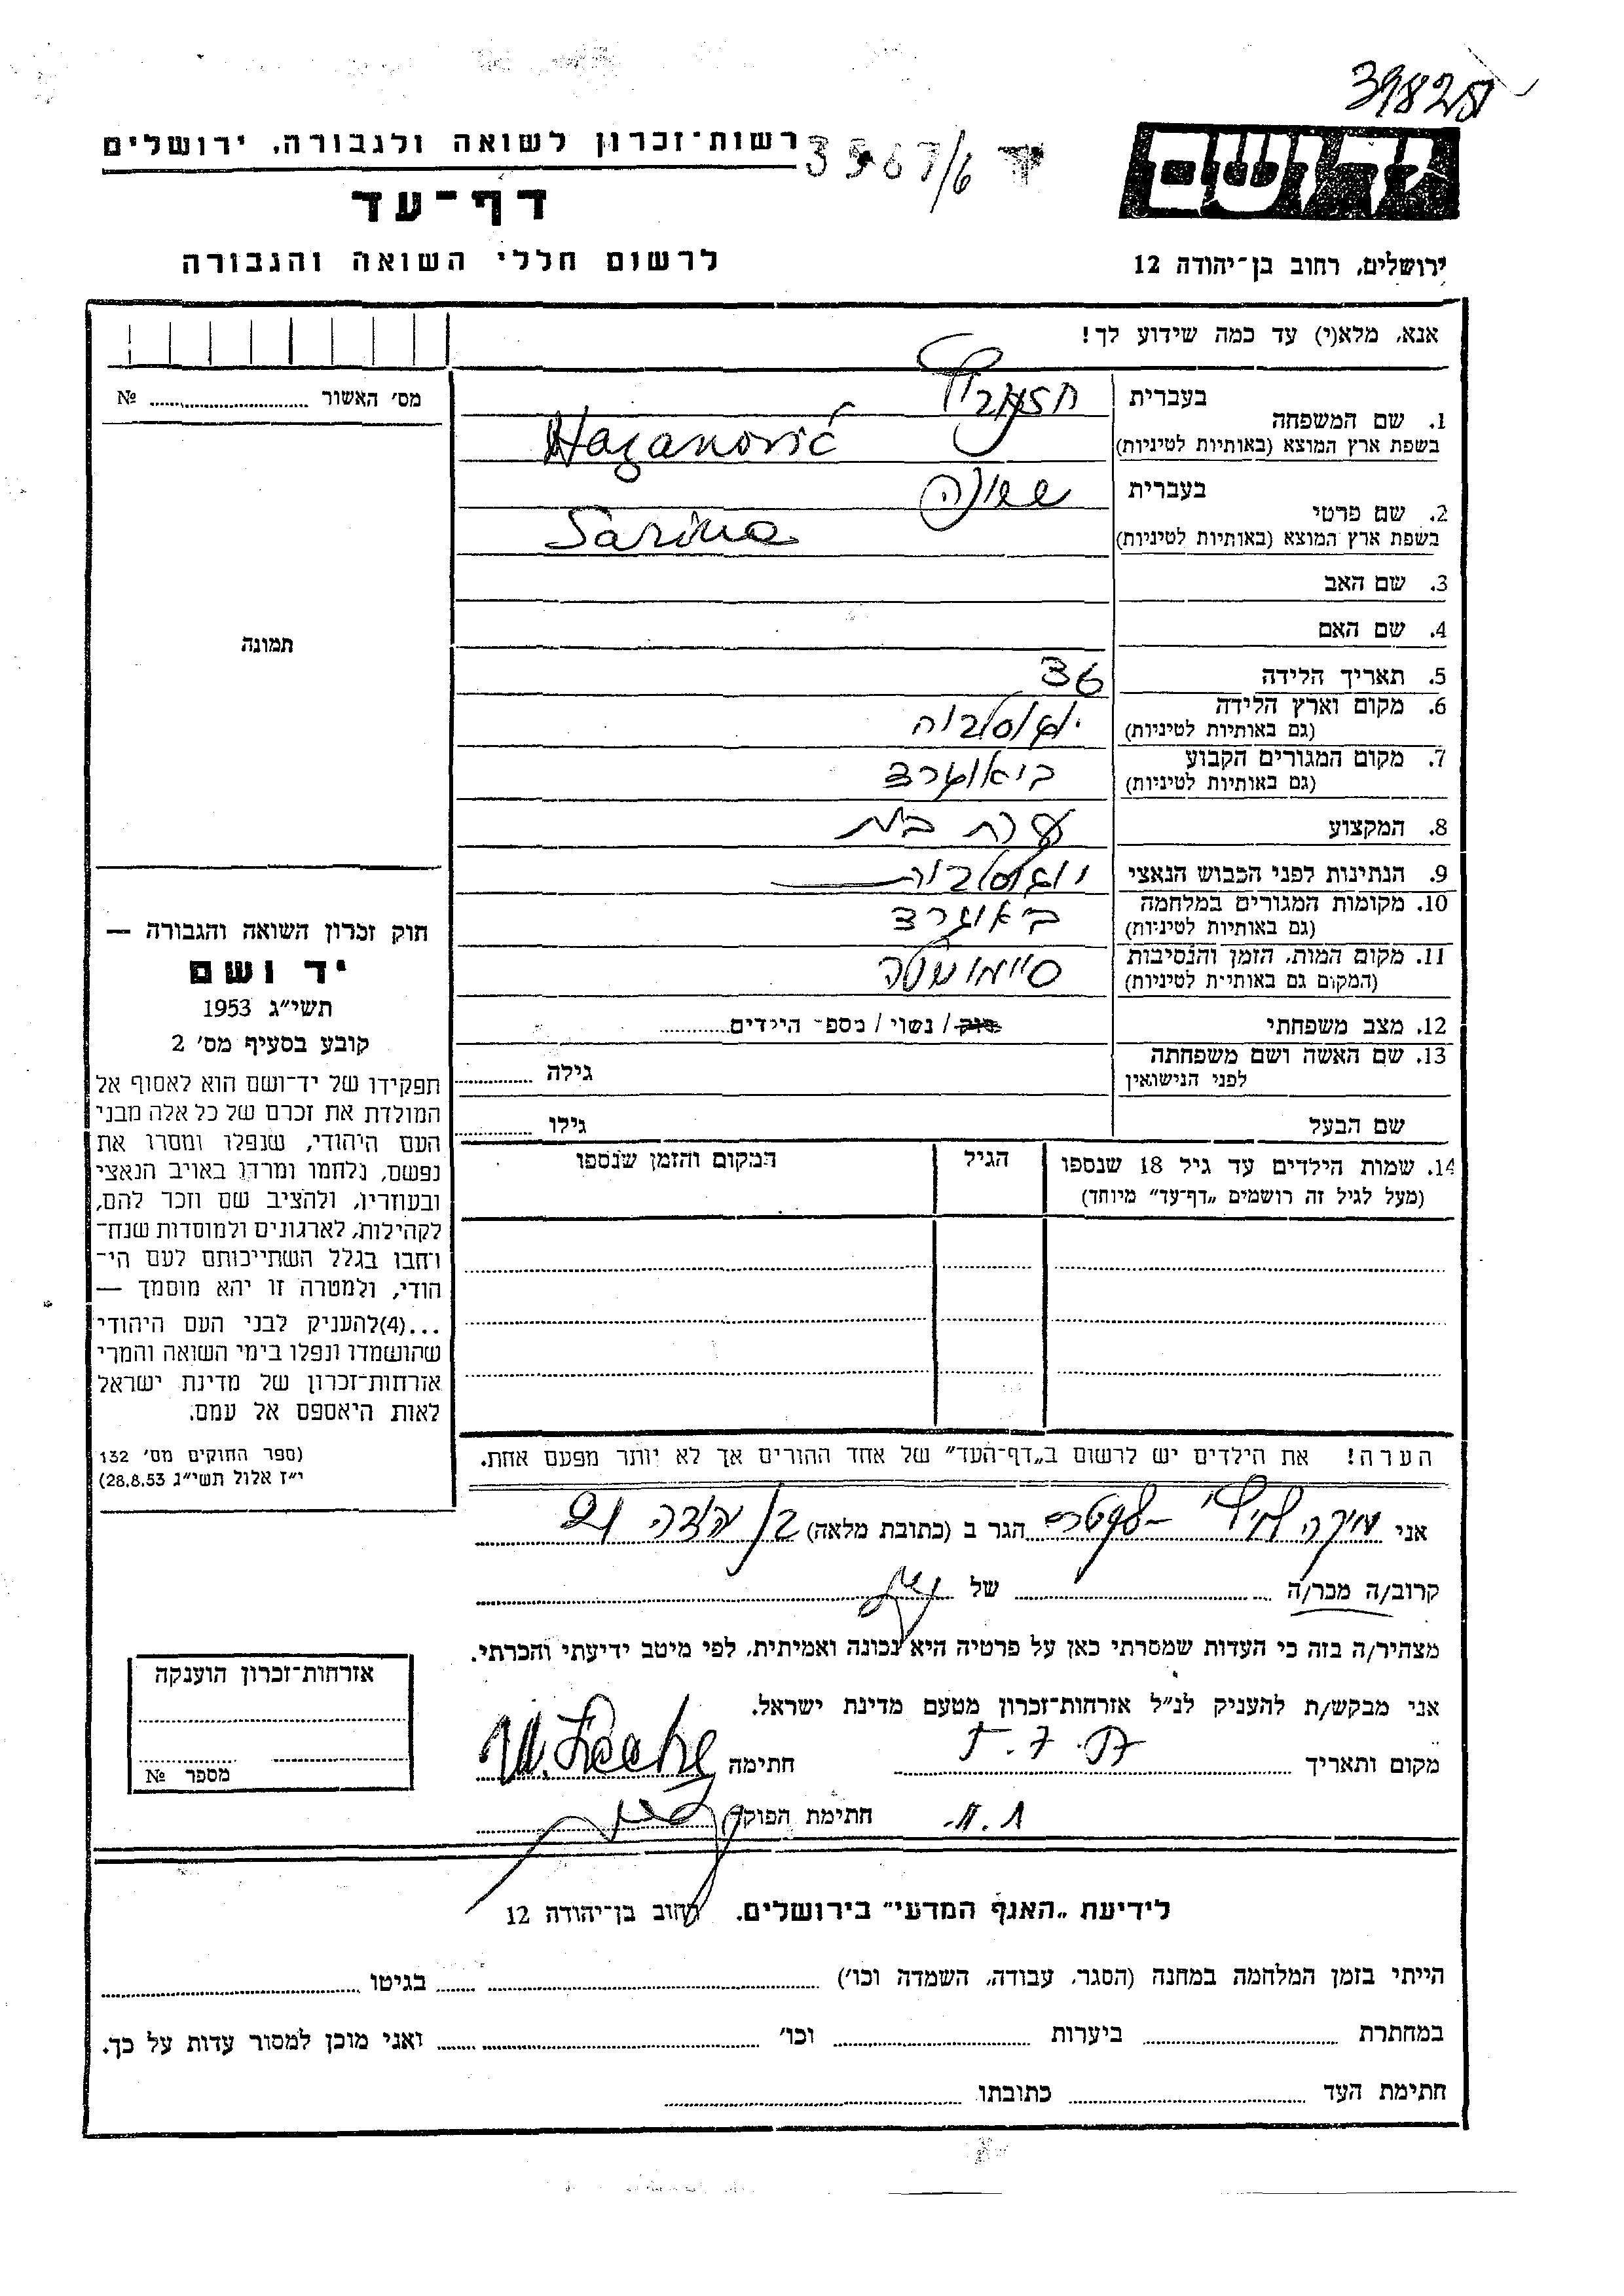 39825
רשות־זכרון לשואה ולגבורה, ירושלים
3567/6
יד ושם
דף־עד
לרשום חללי השואה והגבורה
ירושלים, רחוב בן־יהודה 12
אנא, מלא(י) עד כמה שידוע לך!
מס׳ האשור № ........
תמונה
1. שם המשפחה
בעברית
בשפת ארץ המוצא (באותיות לטיניות) Hazanović
2. שם פרטי
בעברית
בשפת ארץ המוצא (באותיות לטיניות) Sarina
3. שם האב
4. שם האם
5. תאריך הלידה 36
6. מקום וארץ הלידה
(גם באותיות לטיניות) יוגוסלביה
7. מקום המגורים הקבוע
(גם באותיות לטיניות) ביאוגרד
8. המקצוע עקרת בית
9. הנתינות לפני הכבוש הנאצי יוגוסלביה
10. מקומות המגורים במלחמה
(גם באותיות לטיניות) ביאוגרד
11. מקום המות, הזמן והנסיבות
(המקום גם באותיות לטיניות) סיימושטה
12. מצב משפחתי רוק / נשוי / מספ־ הילדים........
13. שם האשה ושם משפחתה
לפני הנישואין גילה ........
שם הבעל גילו ........
14. שמות הילדים עד גיל 18 שנספו הגיל המקום והזמן שנספו
(מעל לגיל זה רושמים „דף־עד״ מיוחד)
חוק זכרון השואה והגבורה —
יד ושם
תשי״ג 1953
קובע בסעיף מס׳ 2
תפקידו של יד־ושם הוא לאסוף אל
המולדת את זכרם של כל אלה מבני
העם היהודי, שנפלו ומסרו את
נפשם, נלחמו ומרדו באויב הנאצי
ובעוזריו, ולהציב שם וזכר להם,
לקהילות, לארגונים ולמוסדות שנח־
רבו בגלל השתייכותם לעם הי־
הודי, ולמטרה זו יהא מוסמך —
...(4)להעניק לבני העם היהודי
שהושמדו ונפלו בימי השואה והמרי
אזרחות־זכרון של מדינת ישראל
לאות היאספם אל עמם.
(ספר החוקים מס׳ 132
י״ז אלול תשי״ג 28.8.53)
הערה! את הילדים יש לרשום ב„דף־העד״ של אחד ההורים אך לא יותר מפעם אחת.
אני הגר ב (כתובת מלאה) בן יהודה
קרוב/ה מכר/ה ........ של ........
מצהיר/ה בזה כי העדות שמסרתי כאן על פרטיה היא נכונה ואמיתית, לפי מיטב ידיעתי והכרתי.
אני מבקש/ת להעניק לנ״ל אזרחות־זכרון מטעם מדינת ישראל.
מקום ותאריך ........ חתימה
חתימת הפוקד
אזרחות־זכרון הוענקה
מספר №
לידיעת „האגף המדעי״ בירושלים. רחוב בן־יהודה 12
הייתי בזמן המלחמה במחנה (הסגר, עבודה, השמדה וכו׳) ........ בגיטו ........
במחתרת ........ ביערות ........ וכו׳ ........ ואני מוכן למסור עדות על כך.
חתימת העד ........ כתובתו ........